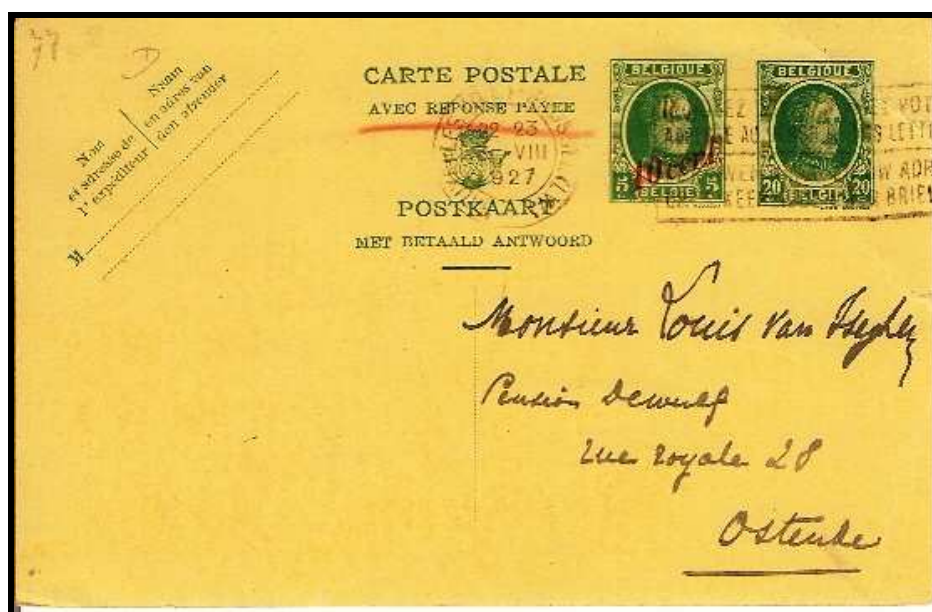 Nom
et adresse de
l'expéditeur
Naam
en adres van
den afzender
M
CARTE POSTALE
AVEC REPONSE PAYEE
22 23
VIII
1927
POSTKAART
MET BETAALD ANTWOORD
BELGIQUE
5 BELGIE 5
BELGIQUE
20 BELGIE 20
Monsieur Louis Van Iseghem
Pension Dewulf
rue royale 28
Ostende